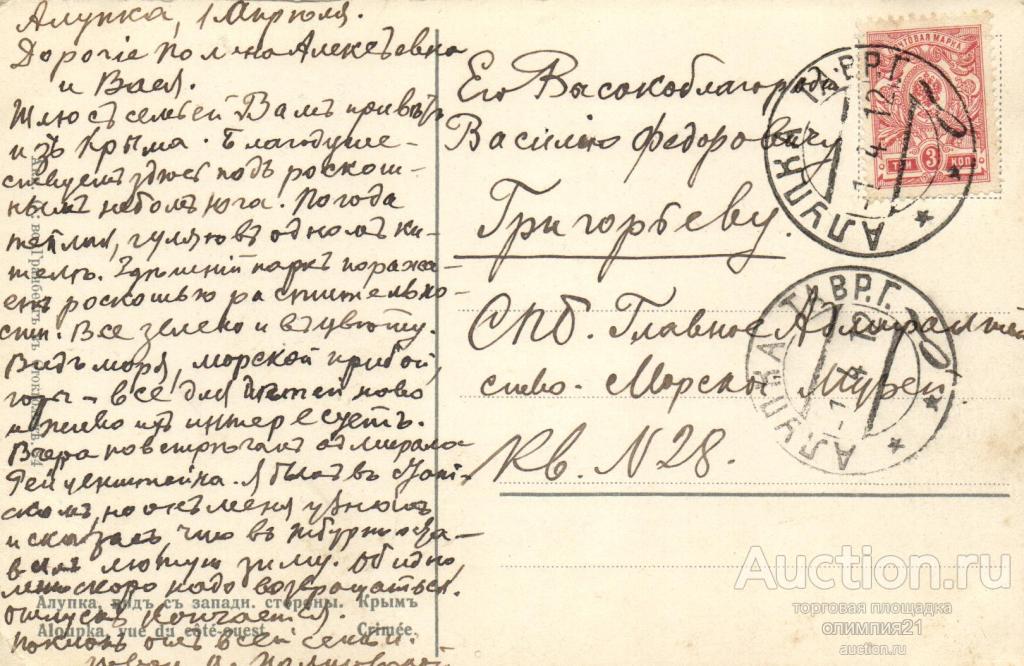 Алупка, 1 Апреля.
Дорогіе Полина Алексѣевна
и Вася.
Шлю съ семьей Вамъ привѣтъ
изъ Крыма. Благодуше-
ствуемъ здѣсь подъ роскош-
нымъ небомъ юга. Погода
теплая, гуляю въ одномъ ки-
телѣ. Здѣшній паркъ поража-
етъ роскошью растительно-
сти. Все зелено и въ цвѣту.
Видъ моря, морской прибой,
горы - все для дѣтей ново
и живо ихъ интересуетъ.
Вчера повстрѣчалъ адмирала
Рейценштейна. Я былъ въ
но онъ меня узналъ
и сказалъ, что въ
лютую зиму. Обидно,
скоро надо возвращаться.
отпускъ кончается.
Поклонъ отъ всей семьи.
Его Высокоблагородію
Василію Федоровичу
Григорьеву.
СПб. Главное Адмиралтей
ство - Морской Музей
Кв. N 28.
ПОЧТОВАЯ МАРКА
ТРИ 3 КОП
АЛУПКА ТАВР.Г.
1 4 12
АЛУПКА ТАВР.Г.
-1 4 12
Алупка, видъ съ западн. стороны. Крымъ
Aloupka, vue du côté-ouest. Crimée.
Auction.ru
торговая площадка
олимпия21
auction.ru